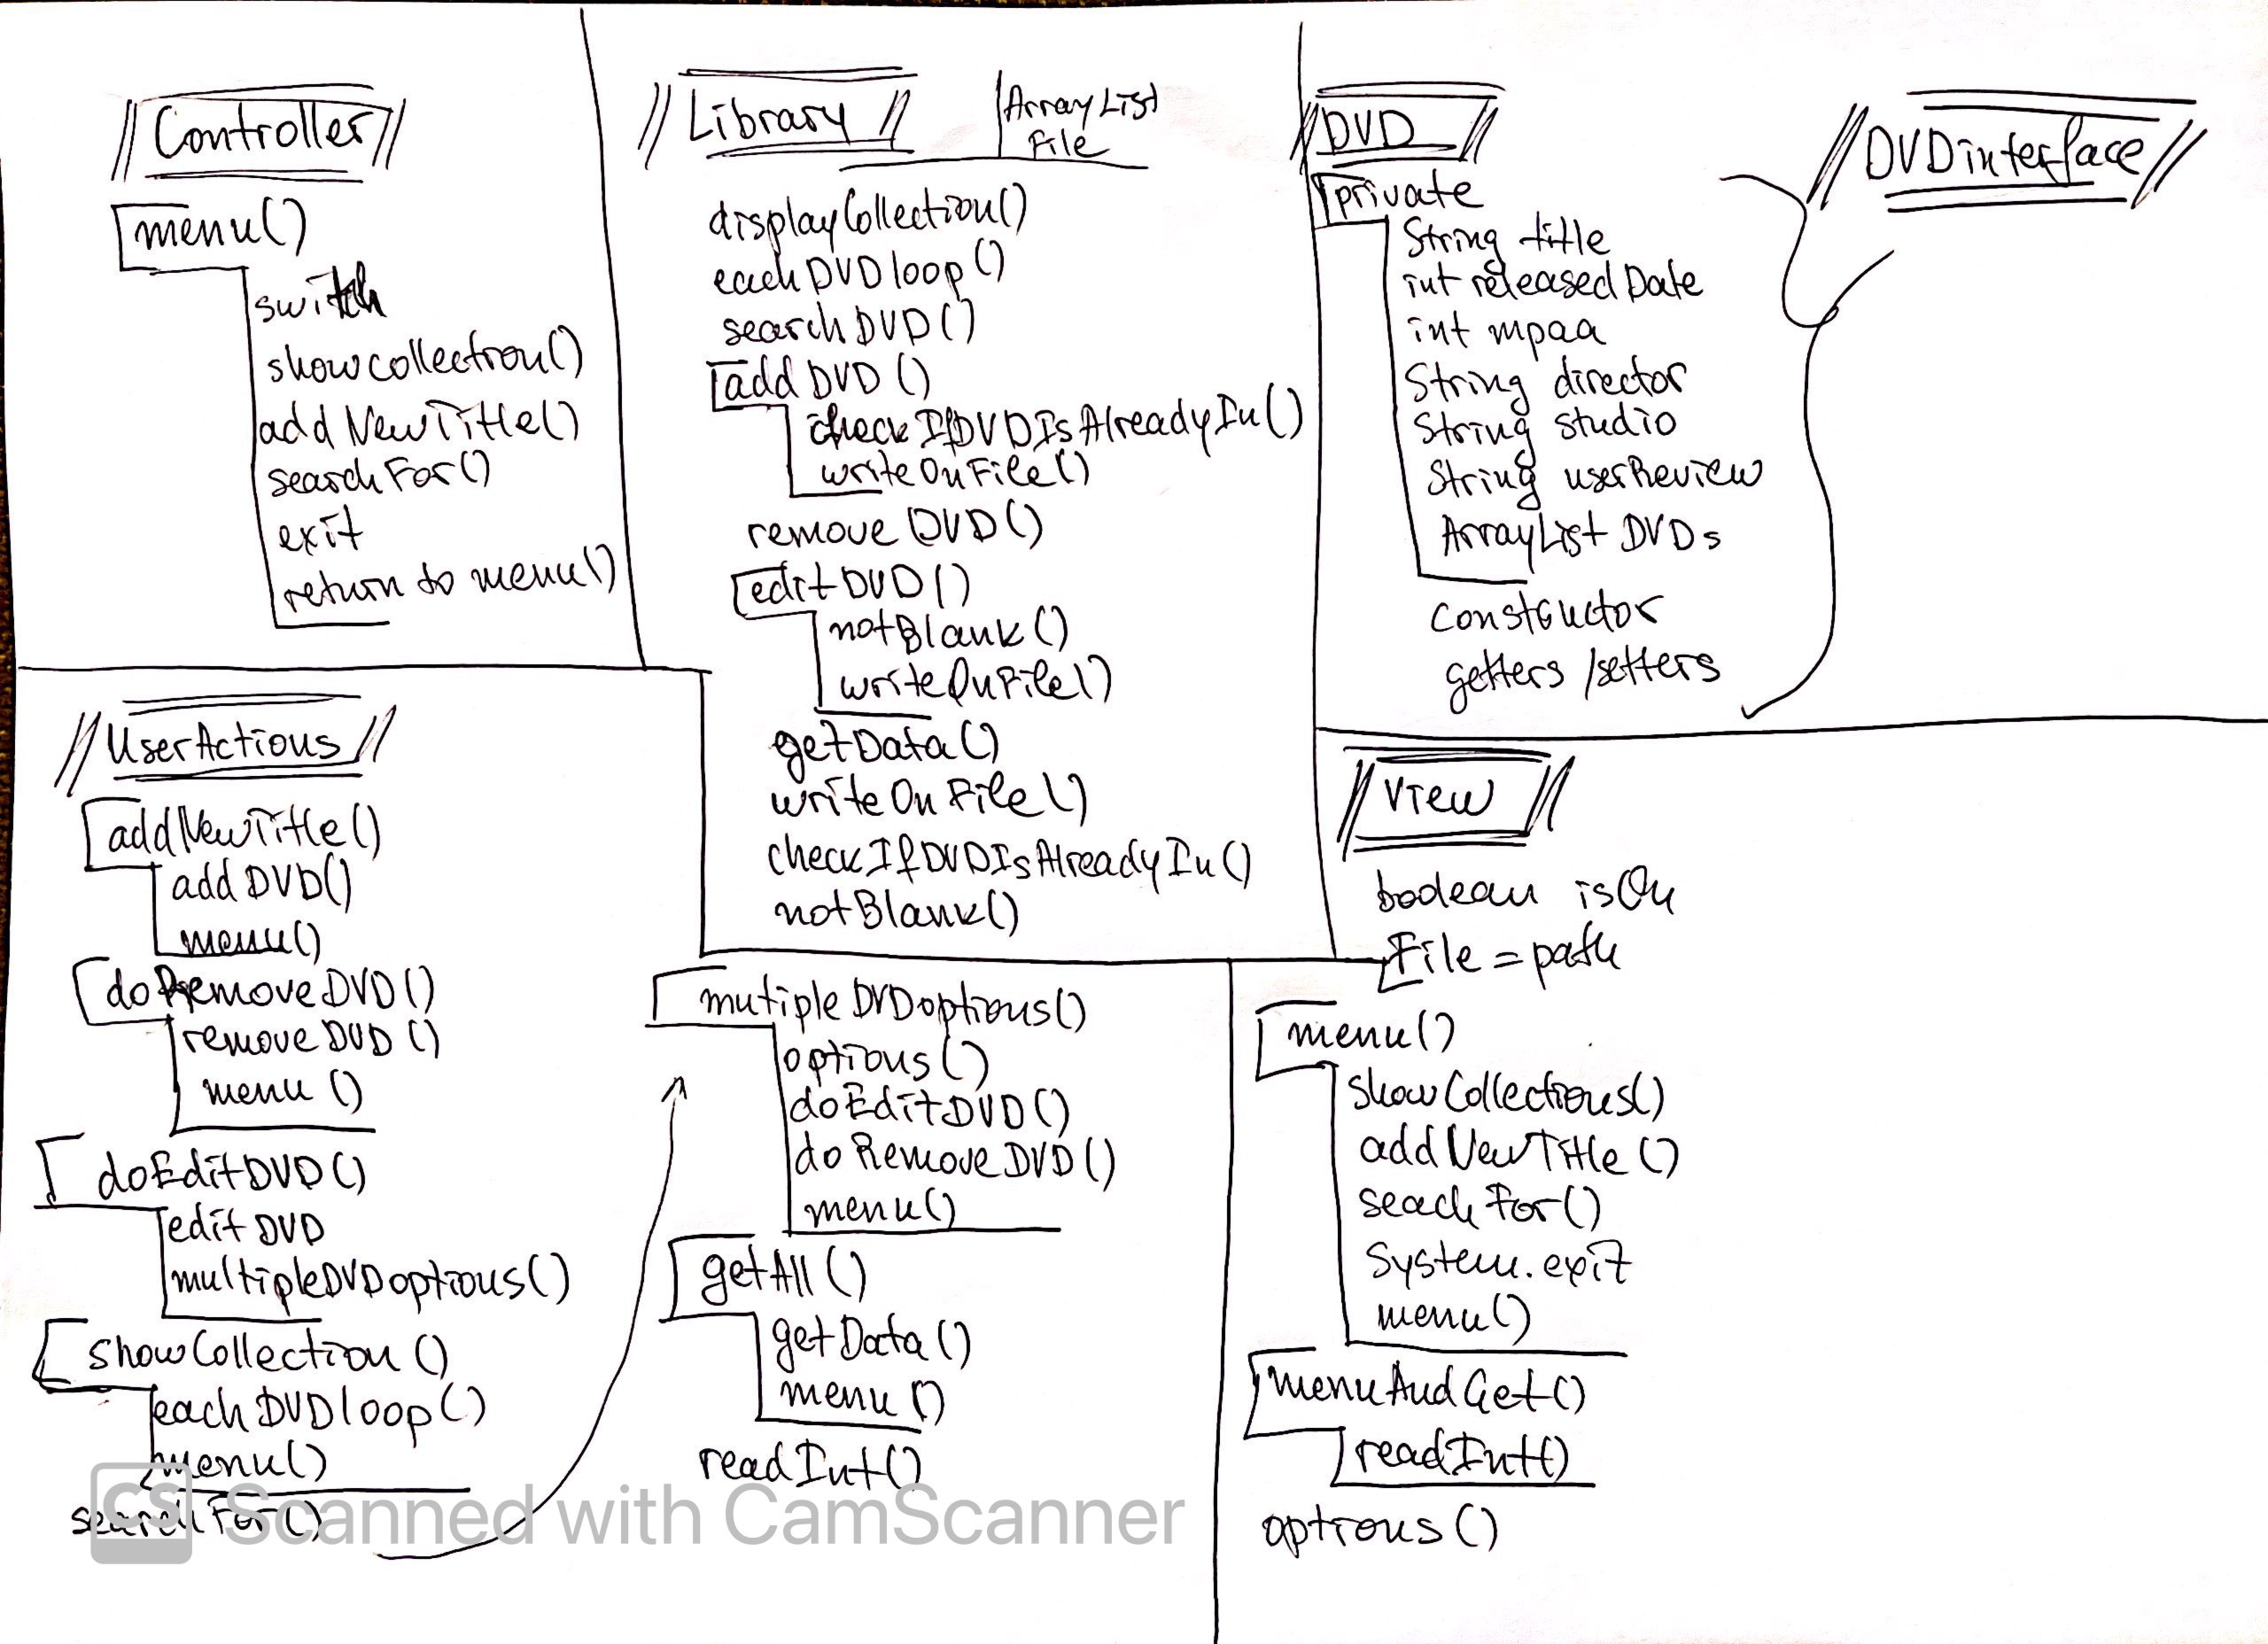 //Controller//
menu()
switch
showcollection()
add NewTitle()
searchFor()
exit
return to menu()
//Library//
ArrayList
File
displayCollection()
eachDVDloop()
searchDVD()
addDVD()
checkIfDVDIsAlreadyIn()
writeOnFile()
remove DVD()
editDVD()
notBlank()
writeOnFile()
getData()
writeOnFile()
checkIfDVDIsAlreadyIn()
notBlank()
//DVD//
private
String title
int releasedDate
int mpaa
String director
String studio
String userReview
ArrayList DVDs
constructor
getters/setters
//DVDinterface//
//UserActions//
addNewTitle()
addDVD()
menu()
doRemoveDVD()
removeDVD()
menu()
doEditDVD()
editDVD
multipleDVDoptions()
showCollection()
eachDVDloop()
menu()
searchFor()
mutipleDVDoptions()
options()
doEditDVD()
doRemoveDVD()
menu()
getAll()
getData()
menu()
readInt()
//View//
boolean isOn
File = path
menu()
showCollections()
addNewTitle()
seachFor()
System.exit
menu()
menuAndGet()
readInt()
options()
CS Scanned with CamScanner